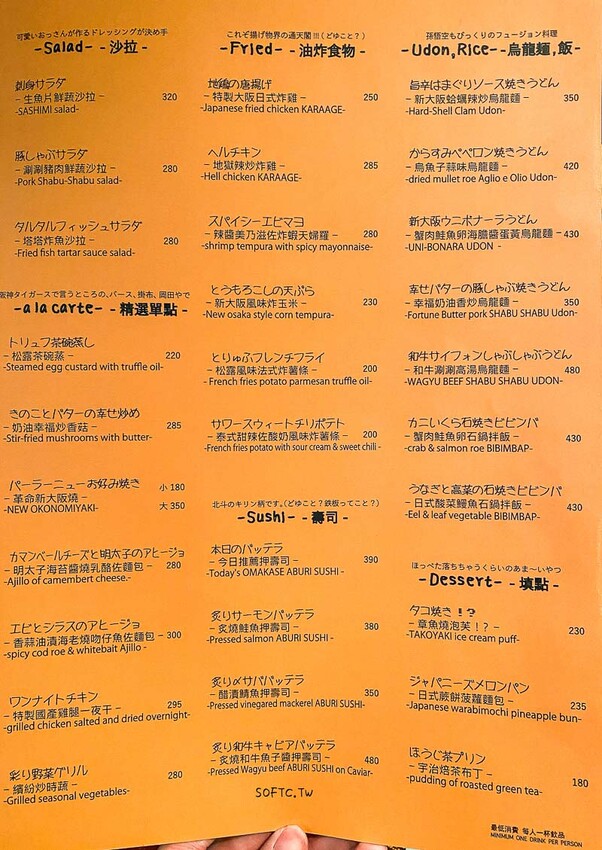 可愛いおっさんが作るドレッシングが決め手
-Salad- -沙拉-
刺身サラダ
-生魚片鮮蔬沙拉- 320
-SASHIMI salad-
豚しゃぶサラダ
-涮涮豬肉鮮蔬沙拉- 280
-Pork Shabu-Shabu salad-
タルタルフィッシュサラダ
-塔塔炸魚沙拉- 280
-Fried fish tartar sauce salad-
阪神タイガースで言うところの、バース、掛布、岡田やで
-a la carte- -精選單點-
トリュフ茶碗蒸し
-松露茶碗蒸- 220
-Steamed egg custard with truffle oil-
きのことバターの幸せ炒め
-奶油幸福炒香菇- 285
-Stir-fried mushrooms with butter-
パーラーニューお好み焼き 小 180
-革命新大阪燒-
-NEW OKONOMIYAKI- 大 350
カマンベールチーズと明太子のアヒージョ
-明太子海苔醬燒乳酪佐麵包- 280
-Ajillo of camembert cheese.-
エビとシラスのアヒージョ
-香蒜油漬海老燒吻仔魚佐麵包- 300
-spicy cod roe & whitebait Ajillo -
ワンナイトチキン
-特製國產雞腿一夜干- 295
-grilled chicken salted and dried overnight-
彩り野菜グリル
-繽紛炒時蔬- 280
-Grilled seasonal vegetables-
これぞ揚げ物界の通天閣!!!(どゆこと?)
-Fried- -油炸食物-
地鶏の唐揚げ
-特製大阪日式炸雞- 250
-Japanese fried chicken KARAAGE-
ヘルチキン
-地獄辣炒炸雞- 285
-Hell chicken KARAAGE-
スパイシーエビマヨ
-辣醬美乃滋佐炸蝦天婦羅- 280
-shrimp tempura with spicy mayonnaise-
とうもろこしの天ぷら
-新大阪風味炸玉米- 230
-New osaka style corn tempura-
とりゅふフレンチフライ
-松露風味法式炸薯條- 200
- French fries potato parmesan truffle oil-
サワースウィートチリポテト
-泰式甜辣佐酸奶風味炸薯條- 200
-French fries potato with sour cream & sweet chili -
北斗のキリン柄です。(どゆこと?鉄板ってこと?)
-Sushi- -壽司-
本日のバッテラ
-今日推薦押壽司- 390
-Today's OMAKASE ABURI SUSHI -
炙りサーモンバッテラ
-炙燒鮭魚押壽司- 380
-Pressed salmon ABURI SUSHI -
炙り〆サババッテラ
-醋漬鯖魚押壽司- 350
-Pressed vinegared mackerel ABURI SUSHI-
炙り和牛キャビアバッテラ
-炙燒和牛魚子醬押壽司- 480
-Pressed Wagyu beef ABURI SUSHI on Caviar-
SOFTC.TW
孫悟空もびっくりのフュージョン料理
-Udon,Rice- -烏龍麵,飯-
旨辛はまぐりソース焼きうどん
-新大阪蛤蠣辣炒烏龍麵- 350
-Hard-Shell Clam Udon-
からすみペペロン焼きうどん
-烏魚子蒜味烏龍麵- 420
-dried mullet roe Aglio e Olio Udon-
新大阪ウニボナーラうどん
-蟹肉鮭魚卵海膽醬蛋黃烏龍麵- 430
-UNI-BONARA UDON -
幸せバターの豚しゃぶ焼きうどん
-幸福奶油香炒烏龍麵- 350
-Fortune Butter pork SHABU SHABU Udon-
和牛サイフォンしゃぶしゃぶうどん
-和牛涮涮高湯烏龍麵- 480
-WAGYU BEEF SHABU SHABU UDON-
カニいくら石焼きビビンバ
-蟹肉鮭魚卵石鍋拌飯- 430
-crab & salmon roe BIBIMBAP-
うなぎと高菜の石焼きビビンバ
-日式酸菜鰻魚石鍋拌飯- 430
-Eel & leaf vegetable BIBIMBAP-
ほっぺた落ちちゃうくらいのあま〜いやつ
-Dessert- -填點-
タコ焼き!?
-章魚燒泡芙!?- 230
-TAKOYAKI ice cream puff-
ジャパニーズメロンパン
-日式蕨餅菠蘿麵包- 235
-Japanese warabimochi pineapple bun-
ほうじ茶プリン
-宇治焙茶布丁- 180
-pudding of roasted green tea-
最低消費 每人一杯飲品
MINIMUM ONE DRINK PER PERSON